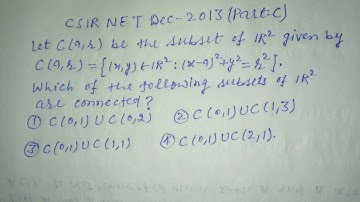 CSIR NET Dec-2013 (Part-C)
Let C(a,r) be the subset of IR² given by
C(a,r) = {(x,y) ∈ IR² : (x-a)² + y² = r²}.
Which of the following subsets of IR²
are connected?
① C(0,1) ∪ C(0,2) ② C(0,1) ∪ C(1,3)
③ C(0,1) ∪ C(1,1) ④ C(0,1) ∪ C(2,1).